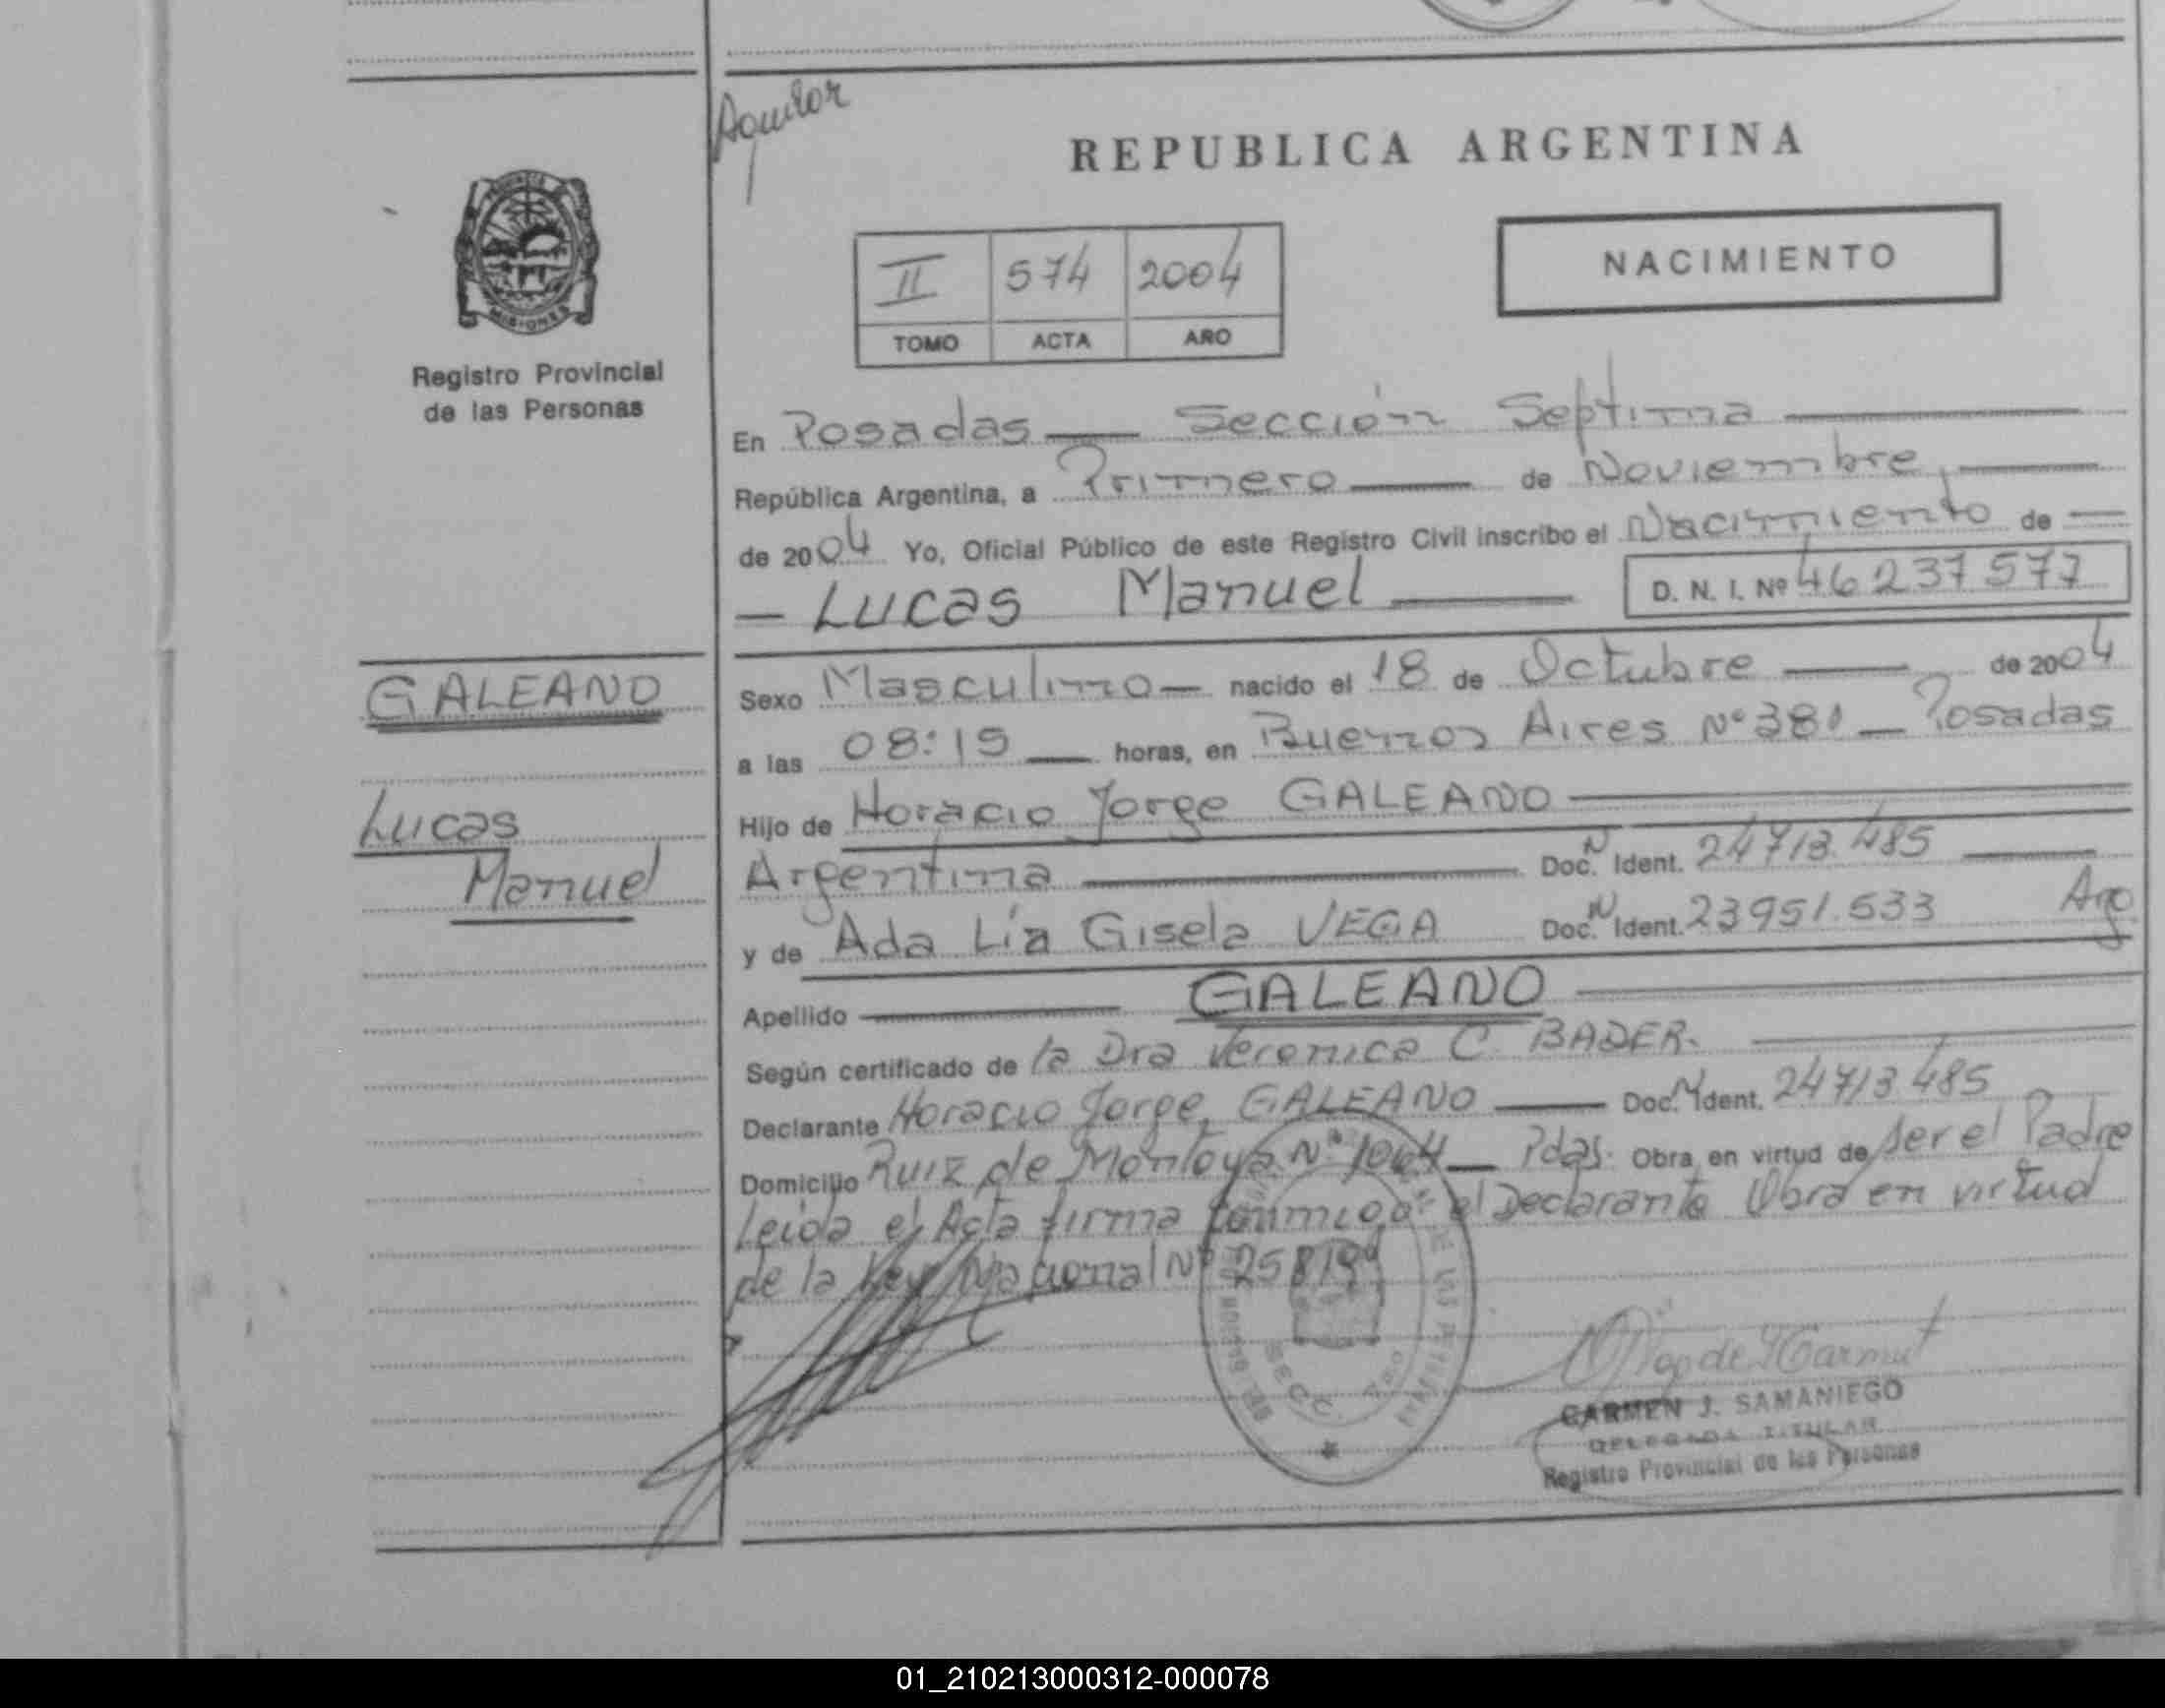 Aquilar
REPUBLICA ARGENTINA
NACIMIENTO
II 574 2004
TOMO ACTA ARO
MISIONES
Registro Provincial
de las Personas
En Posadas — Sección Septima
República Argentina, a Primero de Noviembre,
de 2004 Yo, Oficial Público de este Registro Civil inscribo el Nacimiento de
— Lucas Manuel — D. N. I. Nº 46 237 577
GALEANO
Lucas
Manuel
Sexo Masculino — nacido el 18 de Octubre — de 2004
a las 08:15 — horas, en Buenos Aires Nº 381 — Posadas
Hijo de Horacio Jorge GALEANO
Argentina — Doc. N Ident. 24713.485
y de Ada Lía Gisela VEGA Doc. N Ident. 23951.533 Arg
Apellido — GALEANO
Según certificado de la Dra Veronica C. BADER.
Declarante Horacio Jorge, GALEANO — Doc. N Ident. 24713485
Domicilio Ruiz de Montoya Nº 1064 — Pdas. Obra en virtud de ser el Padre
Leida el Acta firma conmigo el Declarante Obra en virtud
de la Ley Nacional Nº 25819
SECC. 7
CARMEN J. SAMANIEGO
DELEGADA TITULAR
Registro Provincial de las Personas
01_210213000312-000078